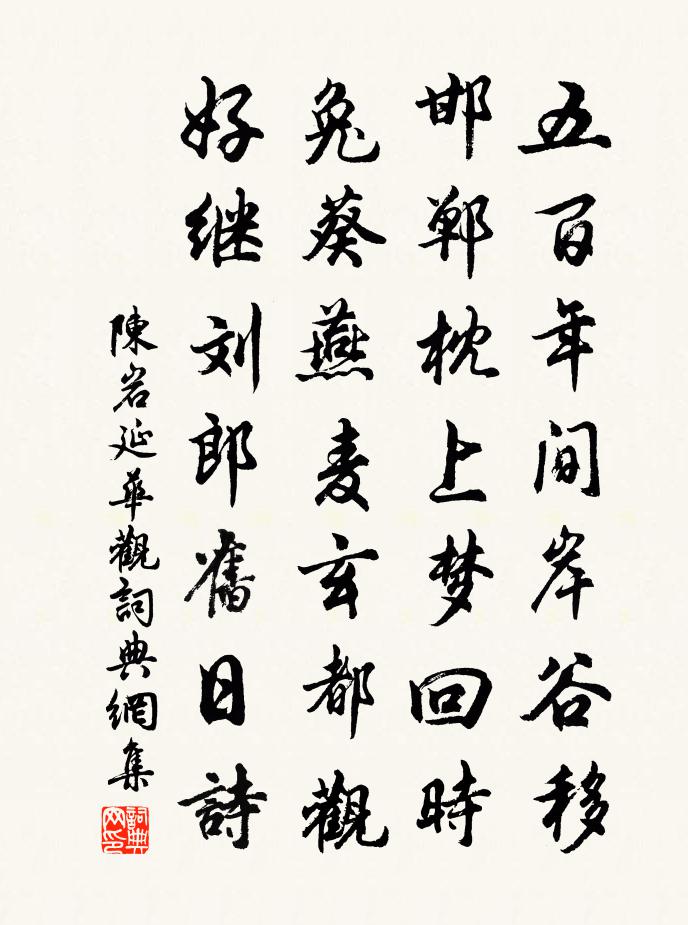 五百年间岸谷移
邯郸枕上梦回時
兔葵燕麦玄都觀
好继刘郎舊日詩
陳岩延華觀詞典網集
詞典网印